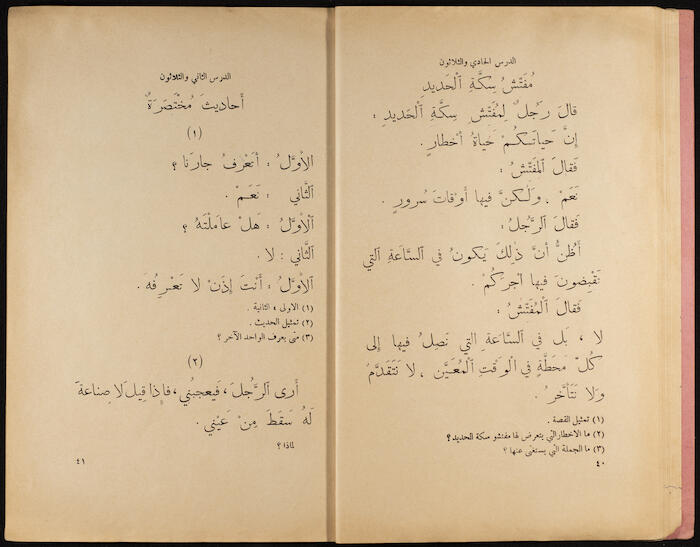 الدرس الحادي والثلاثون
مُفَتِّشُ سِكَّةِ ٱلْحَديدِ
قالَ رَجُلٌ لِمُفَتِّشِ سِكَّةِ ٱلْحَديدِ :
إِنَّ حَياتَـكُـمْ حَياةُ أَخْطارٍ .
فَقالَ ٱلْمُفَتِّشُ :
نَعَمْ ، وَلٰـكِنَّ فيها أَوْقاتَ سُرورٍ .
فَقالَ ٱلرَّجُلُ :
أَظُنُّ أَنَّ ذٰلِكَ يَكونُ في ٱلسَّاعَةِ ٱلَّتي
تَقْبِضونَ فيها أَجْرَكُمْ .
فَقالَ ٱلْمُفَتِّشُ :
لا ، بَل في ٱلسَّاعَةِ ٱلَّتي نَصِلُ فيها إِلى
كُلِّ مَحَطَّةٍ في ٱلْوَقْتِ ٱلْمُعَيَّنِ ، لا نَتَقَدَّمُ
وَلا نَتَأَخَّرُ .
(١) تمثيل القصة .
(٢) ما الاخطار التي يتعرض لها مفتشو سكة الحديد ؟
(٣) ما الجملة التي يستغنى عنها ؟
٤٠
الدرس الثاني والثلاثون
أَحاديثُ مُخْتَصَرَةٌ
(١)
ٱلْأَوَّلُ : أَتَعْرِفُ جارَنا ؟
ٱلثَّاني : نَعَـمْ .
ٱلْأَوَّلُ : هَلْ عامَلْتَهُ ؟
ٱلثَّاني : لا .
ٱلْأَوَّلُ : أَنْتَ إِذَنْ لا تَعْـرِفُهُ .
(١) الاولى ، الثانية .
(٢) تمثيل الحديث .
(٣) متى يعرف الواحد الآخر ؟
(٢)
أَرى ٱلرَّجُلَ ، فَيُعجِبُني ، فَإِذا قيلَ لا صِناعَةَ
لَهُ سَقَطَ مِنْ عَيْني .
لماذا ؟
٤١